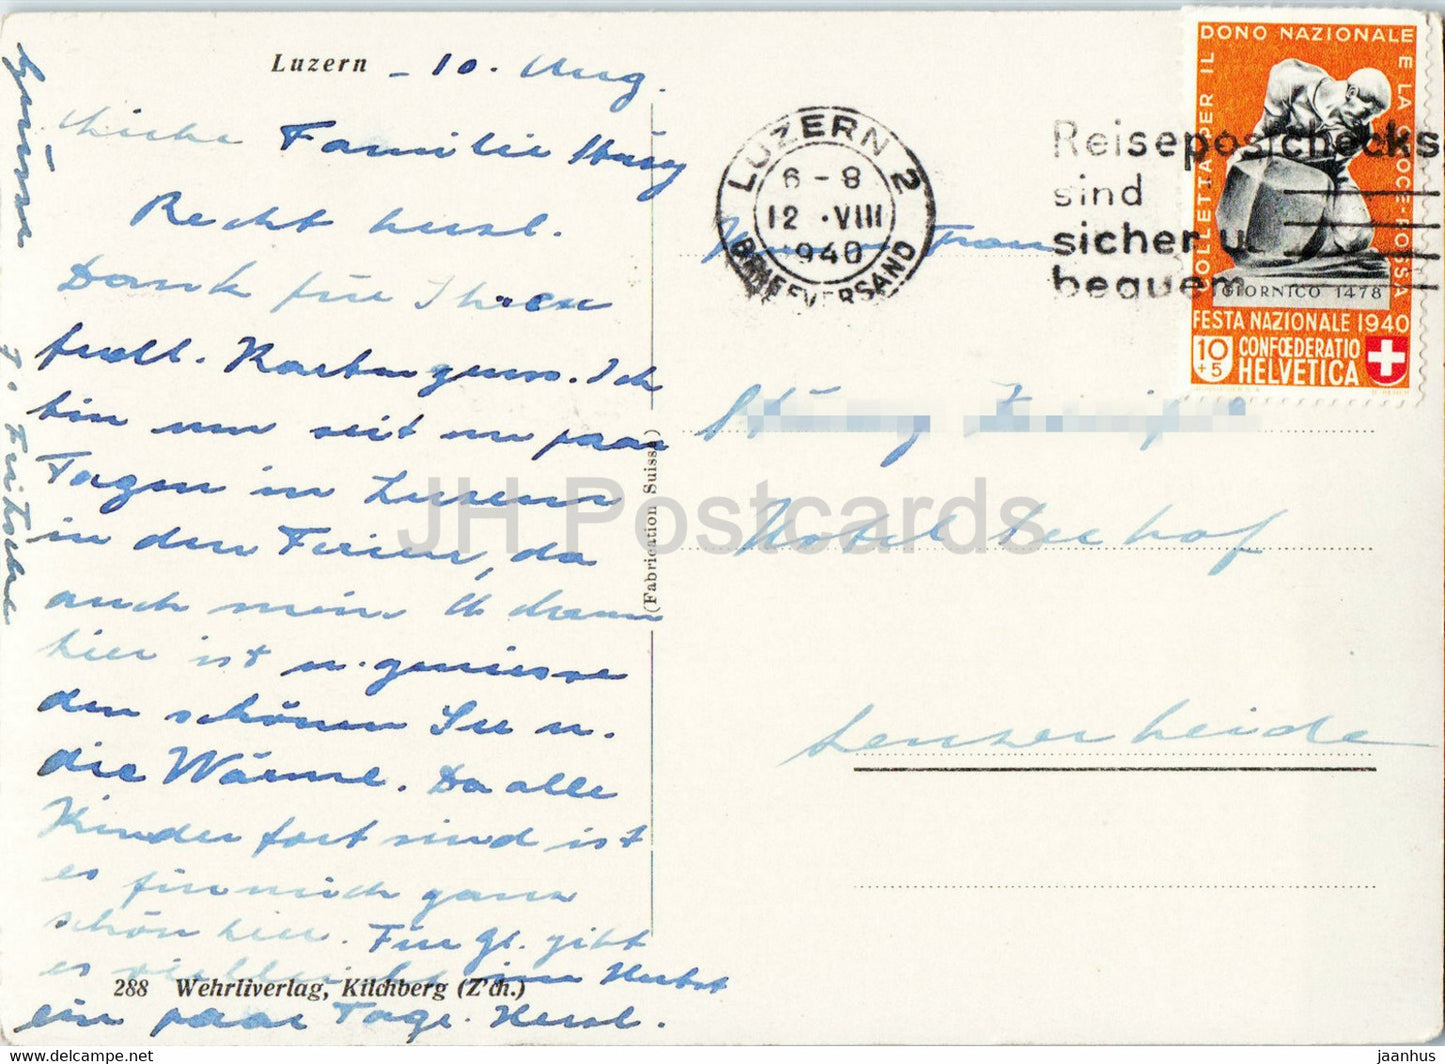 Luzern - 10. Aug.
Liebe Familie Hürg
Recht herzl.
Dank für Ihren
fredl. Kartengruss. Ich
bin nun seit ein paar
Tagen in Luzern
in den Ferien, da
auch mein
hier ist u. geniesse
den schönen See u.
die Wärme. Da alle
Kinder fort sind ist
es für mich ganz
schön hier. Für Gl. gibt
es vielleicht im Herbst
ein paar Tage. Herzl.
Grüsse
288 Wehrliverlag, Kilchberg (Z'ch.)
(Fabrication Suisse)
LUZERN 2
6-8
12.VIII
1940
BRIEFVERSAND
Reisepostchecks
sind
sicher u.
bequem
COLLETTA PER IL DONO NAZIONALE E LA CROCE-ROSSA
GIORNICO 1478
FESTA NAZIONALE 1940
10 +5 CONFŒDERATIO
HELVETICA
Frau
Hotel Seehof
Lenzerheide
JH Postcards
www.hippostcard.com/store/jaanhus
jaanhus